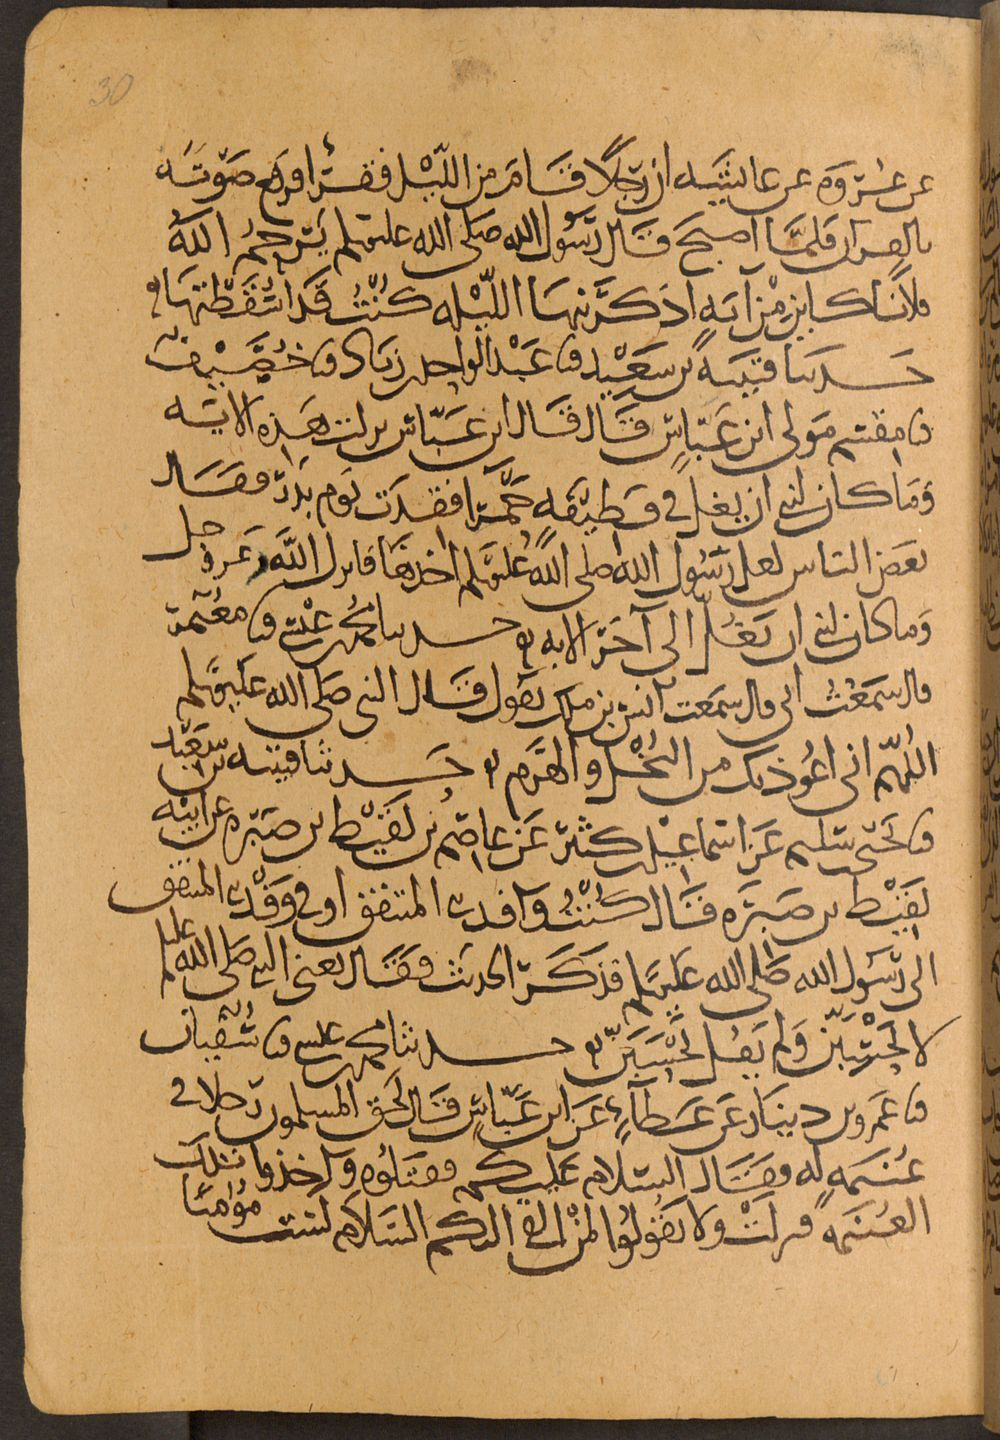 30
عن عروة عن عائشة ان رجلا قام من الليل فقرأ فرفع صوته
بالقرآن فلما اصبح قال رسول الله صلى الله عليه وسلم يرحم الله
فلانا كاين من آية اذكرنيها الليلة كنت قد اسقطتها
حدثنا قتيبة بن سعيد نا عبد الواحد بن زياد نا خصيف
نا مقسم مولى ابن عباس قال قال ابن عباس نزلت هذه الاية
وما كان لنبي ان يغل في قطيفة حمرا فقدت يوم بدر فقال
بعض الناس لعل رسول الله صلى الله عليه وسلم اخذها فانزل الله عز وجل
وما كان لنبي ان يغل الى آخر الاية حدثنا محمد بن عيسى نا معتمر
قال سمعت ابي قال سمعت أنس بن ملك يقول قال النبي صلى الله عليه وسلم
اللهم اني اعوذ بك من البخل والهرم حدثنا قتيبة بن سعيد
نا يحيى بن سليم عن اسماعيل بن كثير عن عاصم بن لقيط بن صبرة عن ابيه
لقيط بن صبرة قال كنت وافد بني المنتفق او في وفد بني المنتفق
الى رسول الله صلى الله عليه وسلم فذكر الحديث فقال يعني النبي صلى الله عليه وسلم
لا تحسبن ولم يقل تحسبن حدثنا محمد بن عيسى نا سفيان
نا عمرو بن دينار عن عطاء عن ابن عباس قال لحق المسلمون رجلا في
غنيمة له فقال السلام عليكم فقتلوه واخذوا تلك
الغنيمة فنزلت ولا تقولوا لمن القى اليكم السلام لست مؤمنا